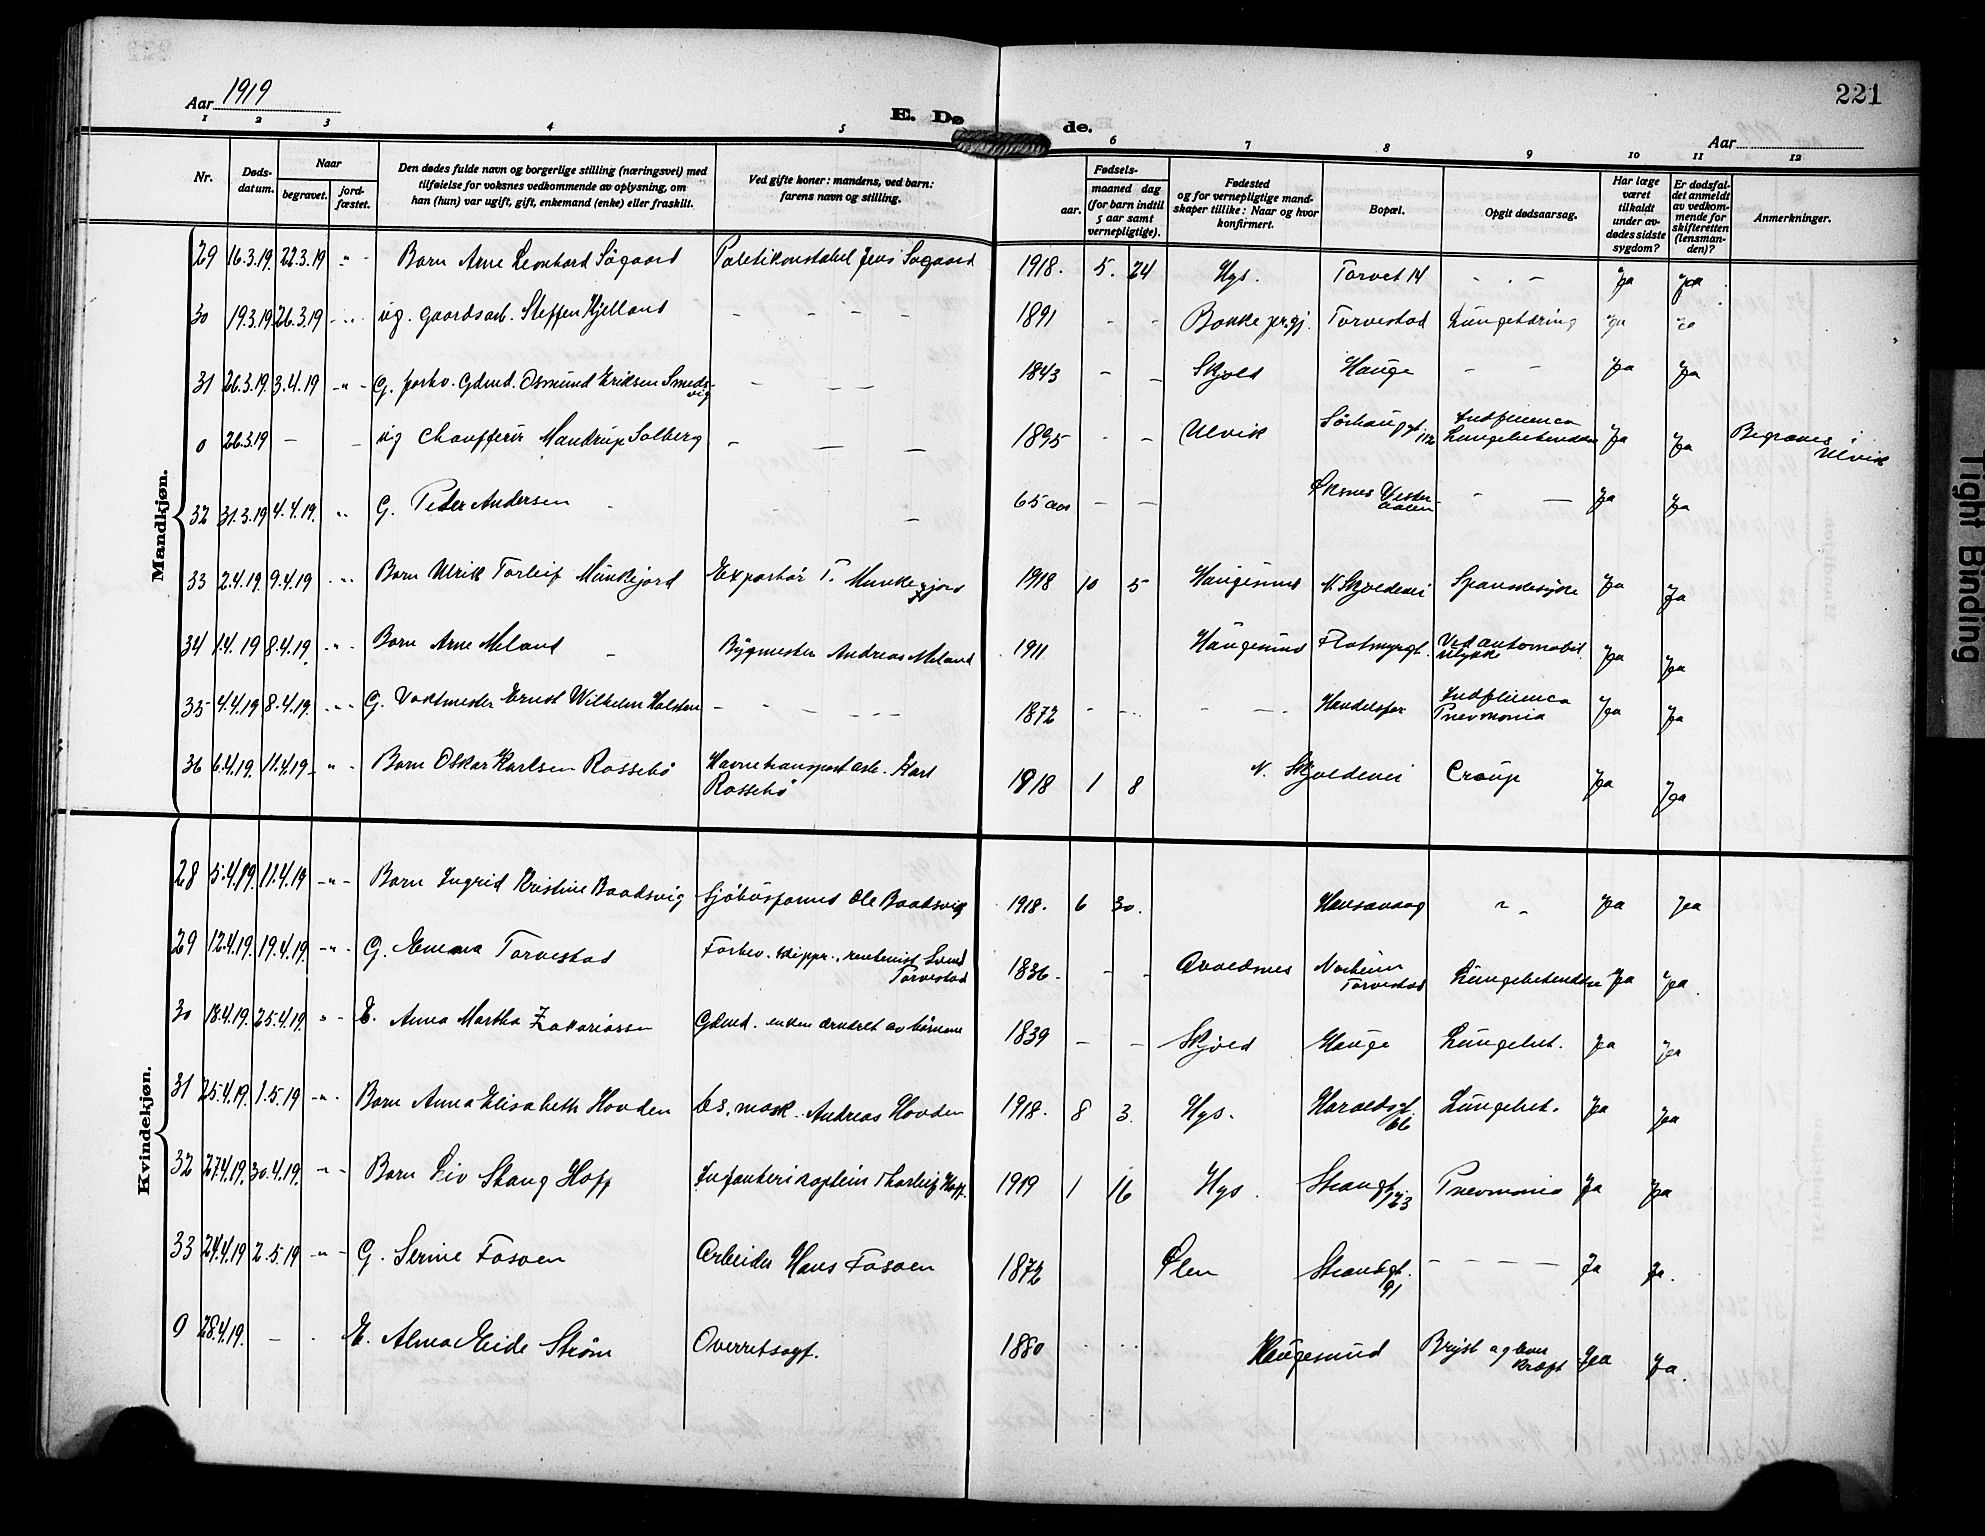 221
Aar 1919
E. Dø de.
Aar
1 2 3 4 5 6 7 8 9 10 11 12
Nr.
Døds-
datum.
Naar
begravet.
jord-
fæstet.
Den dødes fulde navn og borgerlige stilling (næringsvei) med
tilføielse for voksnes vedkommende av oplysning, om
han (hun) var ugift, gift, enkemand (enke) eller fraskilt.
Ved gifte koner: mandens, ved barn:
farens navn og stilling.
Fødsels-
aar.
maaned dag
(for barn indtil
5 aar samt
vernepligtige).
Fødested
og for vernepligtige mand-
skaper tillike: Naar og hvor
konfirmert.
Bopæl.
Opgit dødsaarsag.
Har læge
været
tilkaldt
under av-
dødes sidste
sygdom?
Er dødsfal-
det anmeldt
av vedkom-
mende for
skifteretten
(lensman-
den)?
Anmerkninger.
Mandkjøn.
29 16.3.19. 22.3.19 -"- Barn Arne Leonhard Søgaard Politikonstabel Jens Søgaard 1918. 5. 24 Hgs. Torvet 14 - . - Ja Ja
30 19.3.19. 26.3.19 -"- ug. gaardsarb. Steffen Kjelland - - - - - 1891 - - Bokke prgj. Torvestad Lungetæring Ja Ja
31 26.3.19 3.4.19 -"- G. forhv. Gdmd. Osmund Eriksen Smeds-
vig - - - 1843 - - Skjold Hauge - - Ja Ja
0 26.3.19 - - ug Chauffeur Mandrup Solberg - - - 1895 - - Ulvik Sørhauggt
112 Indfluenca
Lungebetendelse Ja Ja Begraves i
Ulvik
32 31.3.19 4.4.19. " G. Peder Andersen - - - 65 aar - - Øksnes Vester-
aalen - - Ja Ja
33 2.4.19. 9.4.19 -"- Barn Ulrik Torleif Munkejord Exportør T. Munkejord 1918 10 5 Haugesund N. Skjoldevei Spanskesyke Ja Ja
34 1.4.19 8.4.19. -"- Barn Arne Meland - Bygmester Andreas Meland 1911 Haugesund Flotmyrgt. Ved automobil
ulykke Ja Ja
35 4.4.19 8.4.19. -"- G. Vaktmester Ernst Wilhelm Holsten - - - - - 1872 - - - - Handelsfor Indfluenca
Pnevmonia Ja Ja
36 6.4.19. 11.4.19 -"- Barn Oskar Karlsen Rossebø Havnetransportarb. Karl
Rossebø 1918 1 8 N. Skjoldevei Croup Ja Ja
Kvindekjøn.
28 5.4.19. 11.4.19 -"- Barn Ingrid Kristine Baadsvig Sjøhusformd Ole Baadsvig 1918. 6 30. Hansavaag " - Ja Ja
29 12.4.19. 19.4.19. -"- G. Emma Torvestad Forhv. skippr., rentenist Svend
Torvestad 1836. - - Avaldsnes Norheim
Torvestad Lungebetendelse Ja Ja.
30 18.4.19. 25.4.19. "- E. Anna Martha Zakariassen Gdmd. enken ernæret av børnene 1839 - - Skjold Hauge Lungebet. Ja Ja
31 25.4.19. 1.5.19 -"- Barn Anna Elisabeth Hovden bs. mask. Andreas Hovden 1918. 8 3. Hgs. Haraldsgt.
66 Lungebet. Ja Ja
32 27.4.19. 30.4.19. "- Barn Liv Stang Hoff Infanterikaptein Thorleif Hoff. 1919 1 16 Hgs. Strandgt
123 Pnevmonia Ja Ja
33 24.4.19 2.5.19 -"- G. Serine Fosoen Arbeider Hans Fosoen 1872 Ølen Strandgt.
91 - - - - Ja Ja.
0 28.4.19. - - E. Alma Eide Strøm Overretssagf. 1880 Haugesund Bryst og lever
kræft Ja Ja.
Tight Binding